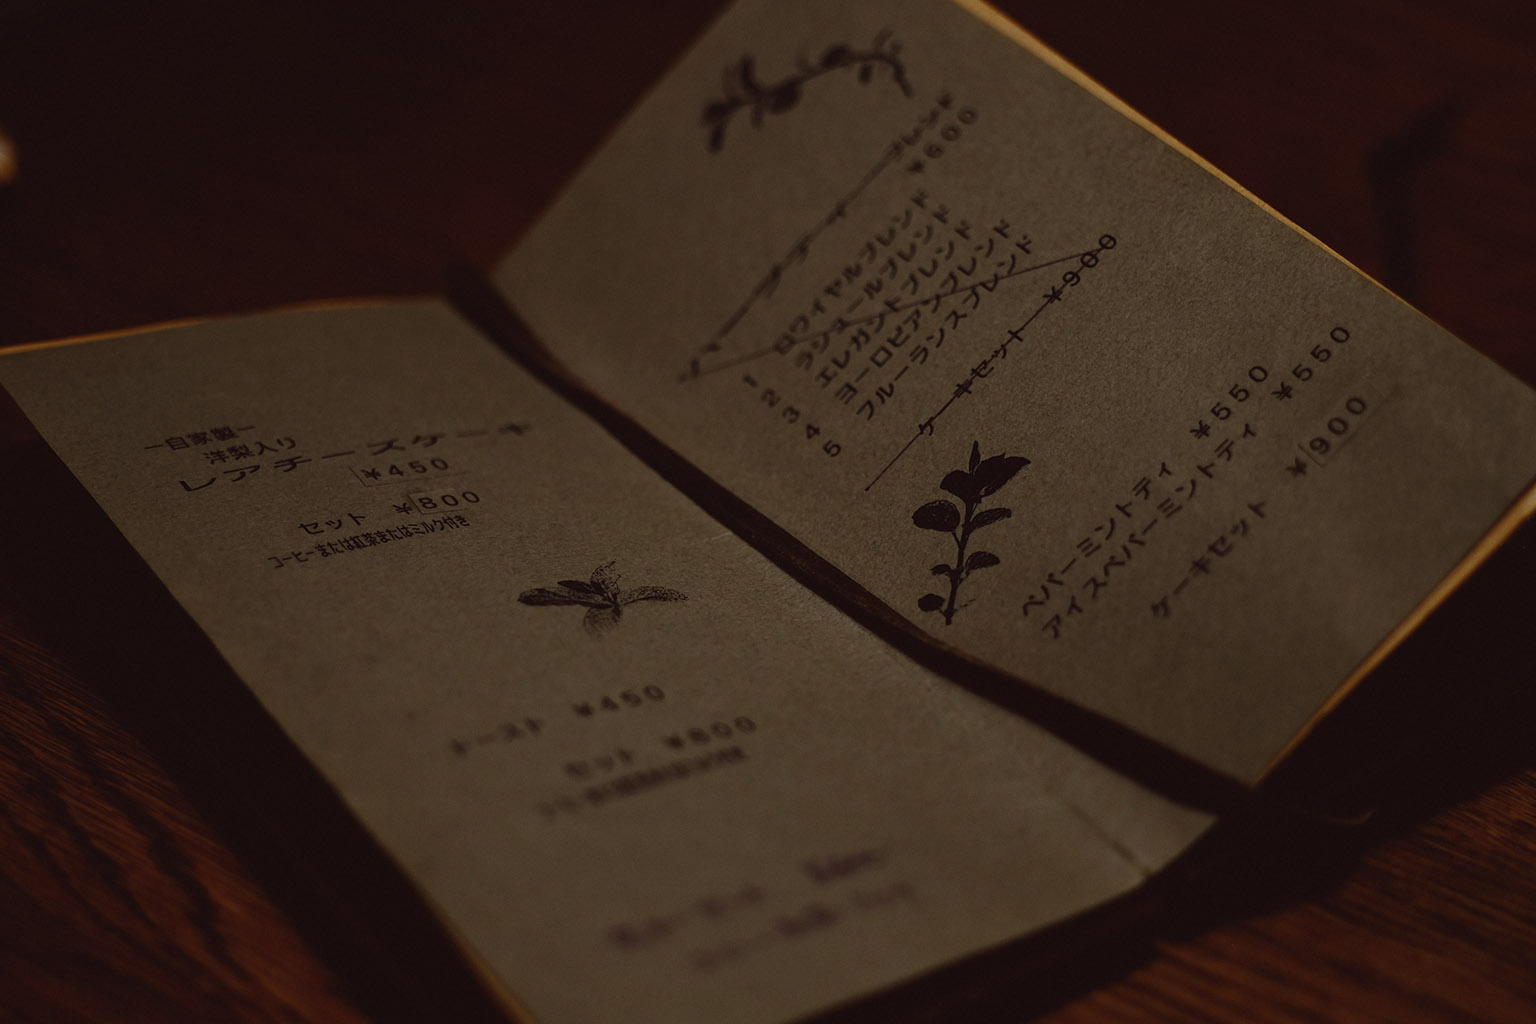 ―自家製―
洋梨入り
レアチーズケーキ
¥450
セット ¥800
コーヒーまたは紅茶またはミルク付き
トースト ¥450
セット ¥800
ブレンド
¥600
1 ロワイヤルブレンド
2 ラジュールブレンド
3 エレガントブレンド
4 ヨーロピアンブレンド
5 フルーランスブレンド
ケーキセット ¥900
ペパーミントティ ¥550
アイスペパーミントティ ¥550
ケーキセット ¥900